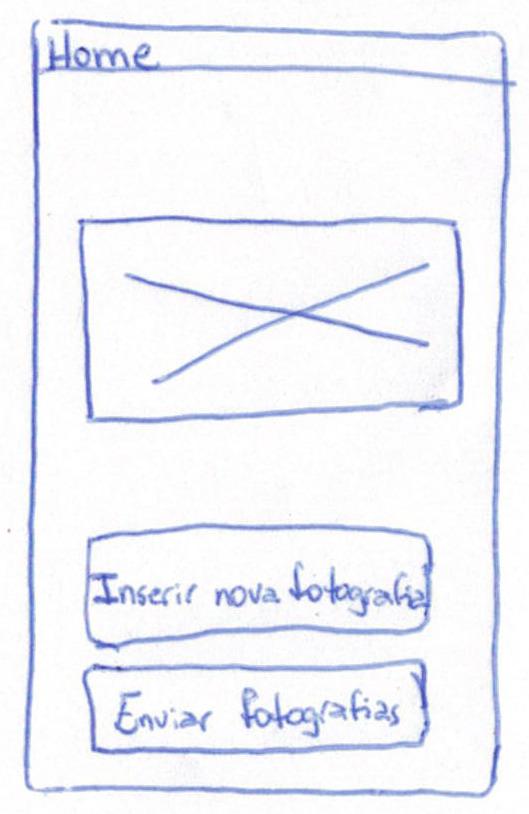 Home
Inserir nova fotografia
Enviar fotografias